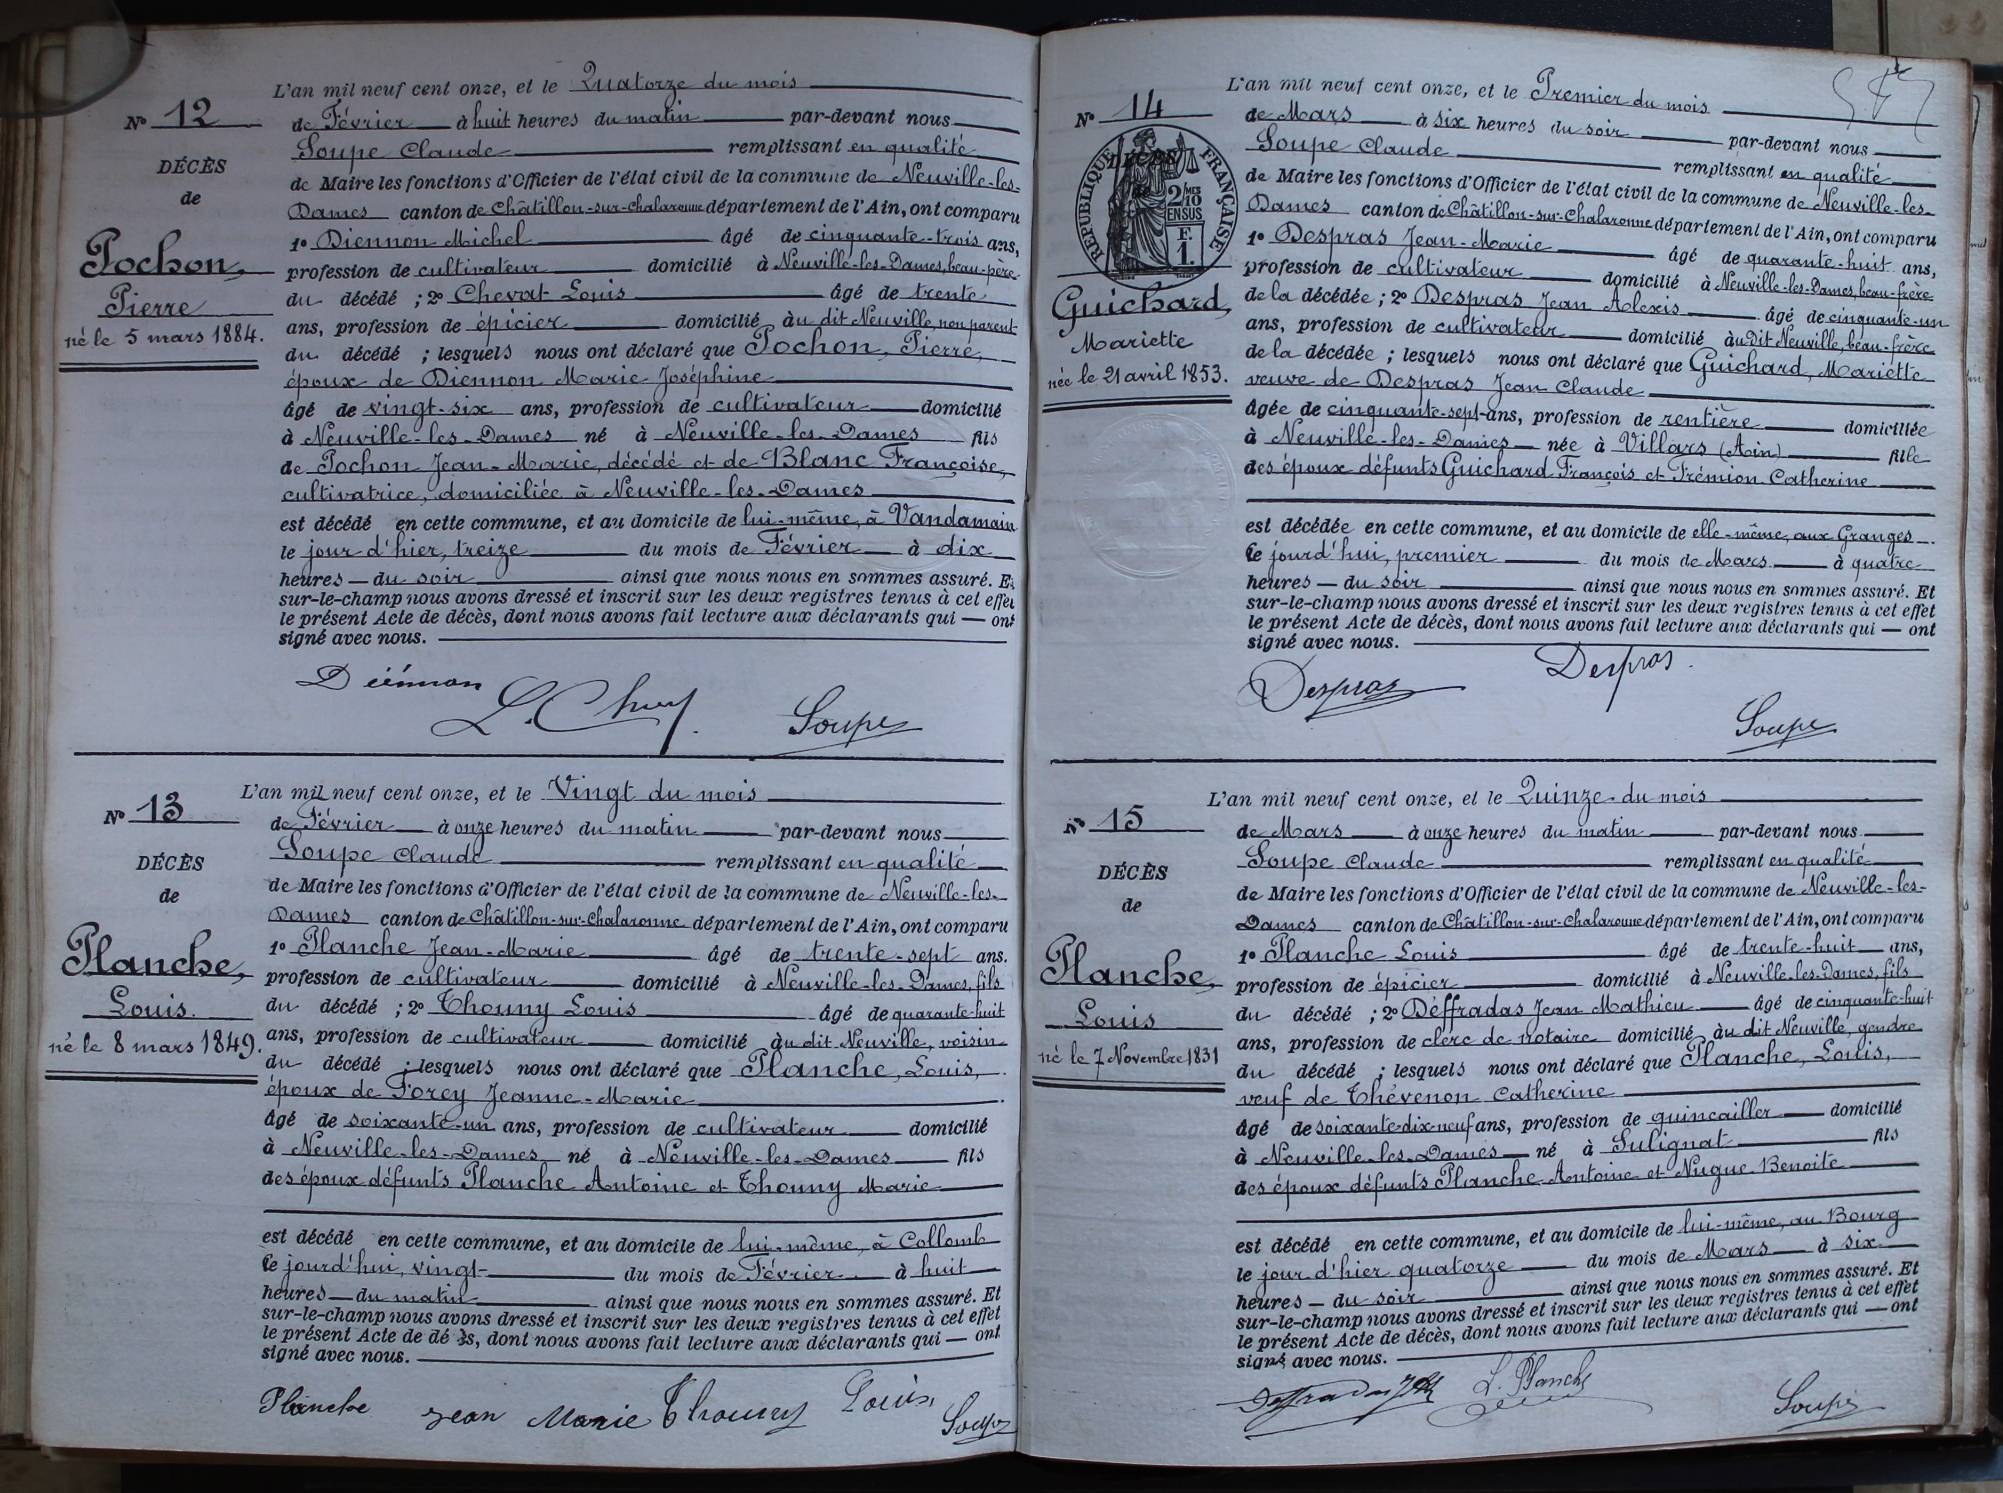 L'an mil neuf cent onze, et le Quatorze du mois
de Février à huit heures du matin par-devant nous
Soupe Claude remplissant en qualité
de Maire les fonctions d'Officier de l'état civil de la commune de Neuville-les-
Dames canton de Châtillon-sur-Chalaronne département de l'Ain, ont comparu
1º Diennon Michel âgé de cinquante-trois ans,
profession de cultivateur domicilié à Neuville-les-Dames, beau-père
du décédé ; 2º Chevat Louis âgé de trente
ans, profession de épicier domicilié au dit Neuville, non parent
du décédé ; lesquels nous ont déclaré que Pochon, Pierre,
époux de Diennon Marie Joséphine
âgé de vingt-six ans, profession de cultivateur domicilié
à Neuville-les-Dames né à Neuville-les-Dames fils
de Pochon Jean-Marie, décédé et de Blanc Françoise,
cultivatrice, domiciliée à Neuville-les-Dames
est décédé en cette commune, et au domicile de lui-même, à Vandamain
le jour d'hier, treize du mois de Février à dix
heures — du soir ainsi que nous nous en sommes assuré. Et
sur-le-champ nous avons dressé et inscrit sur les deux registres tenus à cet effet
le présent Acte de décès, dont nous avons fait lecture aux déclarants qui — ont
signé avec nous.
Nº 12
DÉCÈS
de
Pochon,
Pierre
né le 5 mars 1884.
Diénnon
Soupe
L'an mil neuf cent onze, et le Vingt du mois
de Février à onze heures du matin par-devant nous
Soupe Claude remplissant en qualité
de Maire les fonctions d'Officier de l'état civil de la commune de Neuville-les-
Dames canton de Châtillon-sur-Chalaronne département de l'Ain, ont comparu
1º Planche Jean-Marie âgé de trente-sept ans.
profession de cultivateur domicilié à Neuville-les-Dames, fils
du décédé ; 2º Thouny Louis âgé de quarante-huit
ans, profession de cultivateur domicilié au dit Neuville, voisin
du décédé ; lesquels nous ont déclaré que Planche, Louis,
époux de Forey Jeanne-Marie
âgé de soixante-un ans, profession de cultivateur domicilié
à Neuville-les-Dames né à Neuville-les-Dames fils
des époux défunts Planche Antoine et Thouny Marie
est décédé en cette commune, et au domicile de lui-même, à Collomb
Ce jourd'hui, vingt du mois de Février à huit
heures — du matin ainsi que nous nous en sommes assuré. Et
sur-le-champ nous avons dressé et inscrit sur les deux registres tenus à cet effet
le présent Acte de dé ès, dont nous avons fait lecture aux déclarants qui — ont
signé avec nous.
Nº 13
DÉCÈS
de
Planche,
Louis.
né le 8 mars 1849.
Planche Jean Marie Thouny Louis
Soupe
L'an mil neuf cent onze, et le Premier du mois
de Mars à six heures du soir par-devant nous
Soupe Claude remplissant en qualité
de Maire les fonctions d'Officier de l'état civil de la commune de Neuville-les-
Dames canton de Châtillon-sur-Chalaronne département de l'Ain, ont comparu
1º Despras Jean-Marie âgé de quarante-huit ans,
profession de cultivateur domicilié à Neuville-les-Dames, beau-frère
de la décédée ; 2º Despras Jean Alexis âgé de cinquante-un
ans, profession de cultivateur domicilié au dit Neuville, beau-frère
de la décédée ; lesquels nous ont déclaré que Guichard, Mariette
veuve de Despras Jean Claude
âgée de cinquante-sept ans, profession de rentière domiciliée
à Neuville-les-Dames née à Villars (Ain) fille
des époux défunts Guichard François et Frémion Catherine
est décédée en cette commune, et au domicile de elle-même, aux Granges
Ce jourd'hui, premier du mois de Mars à quatre
heures — du soir ainsi que nous nous en sommes assuré. Et
sur-le-champ nous avons dressé et inscrit sur les deux registres tenus à cet effet
le présent Acte de décès, dont nous avons fait lecture aux déclarants qui — ont
signé avec nous.
Nº 14
DÉCÈS
de
RÉPUBLIQUE FRANÇAISE
2/10
EN SUS
F.
1.
Guichard,
Mariette
née le 21 avril 1853.
Despras
Despras
Soupe
L'an mil neuf cent onze, et le Quinze du mois
de Mars à onze heures du matin par-devant nous
Soupe Claude remplissant en qualité
de Maire les fonctions d'Officier de l'état civil de la commune de Neuville-les-
Dames canton de Châtillon-sur-Chalaronne département de l'Ain, ont comparu
1º Planche Louis âgé de trente-huit ans,
profession de épicier domicilié à Neuville-les-Dames, fils
du décédé ; 2º Déffradas Jean Mathieu âgé de cinquante-huit
ans, profession de clerc de notaire domicilié au dit Neuville, gendre
du décédé ; lesquels nous ont déclaré que Planche, Louis,
veuf de Thévenon Catherine
âgé de soixante-dix-neuf ans, profession de quincailler domicilié
à Neuville-les-Dames né à Sulignat fils
des époux défunts Planche Antoine et Nugue Benoite
est décédé en cette commune, et au domicile de lui-même, au Bourg
le jour d'hier quatorze du mois de Mars à six
heures — du soir ainsi que nous nous en sommes assuré. Et
sur-le-champ nous avons dressé et inscrit sur les deux registres tenus à cet effet
le présent Acte de décès, dont nous avons fait lecture aux déclarants qui — ont
signé avec nous.
Nº 15
DÉCÈS
de
Planche,
Louis
né le 7 Novembre 1831
Deffradas L. Planche
Soupe